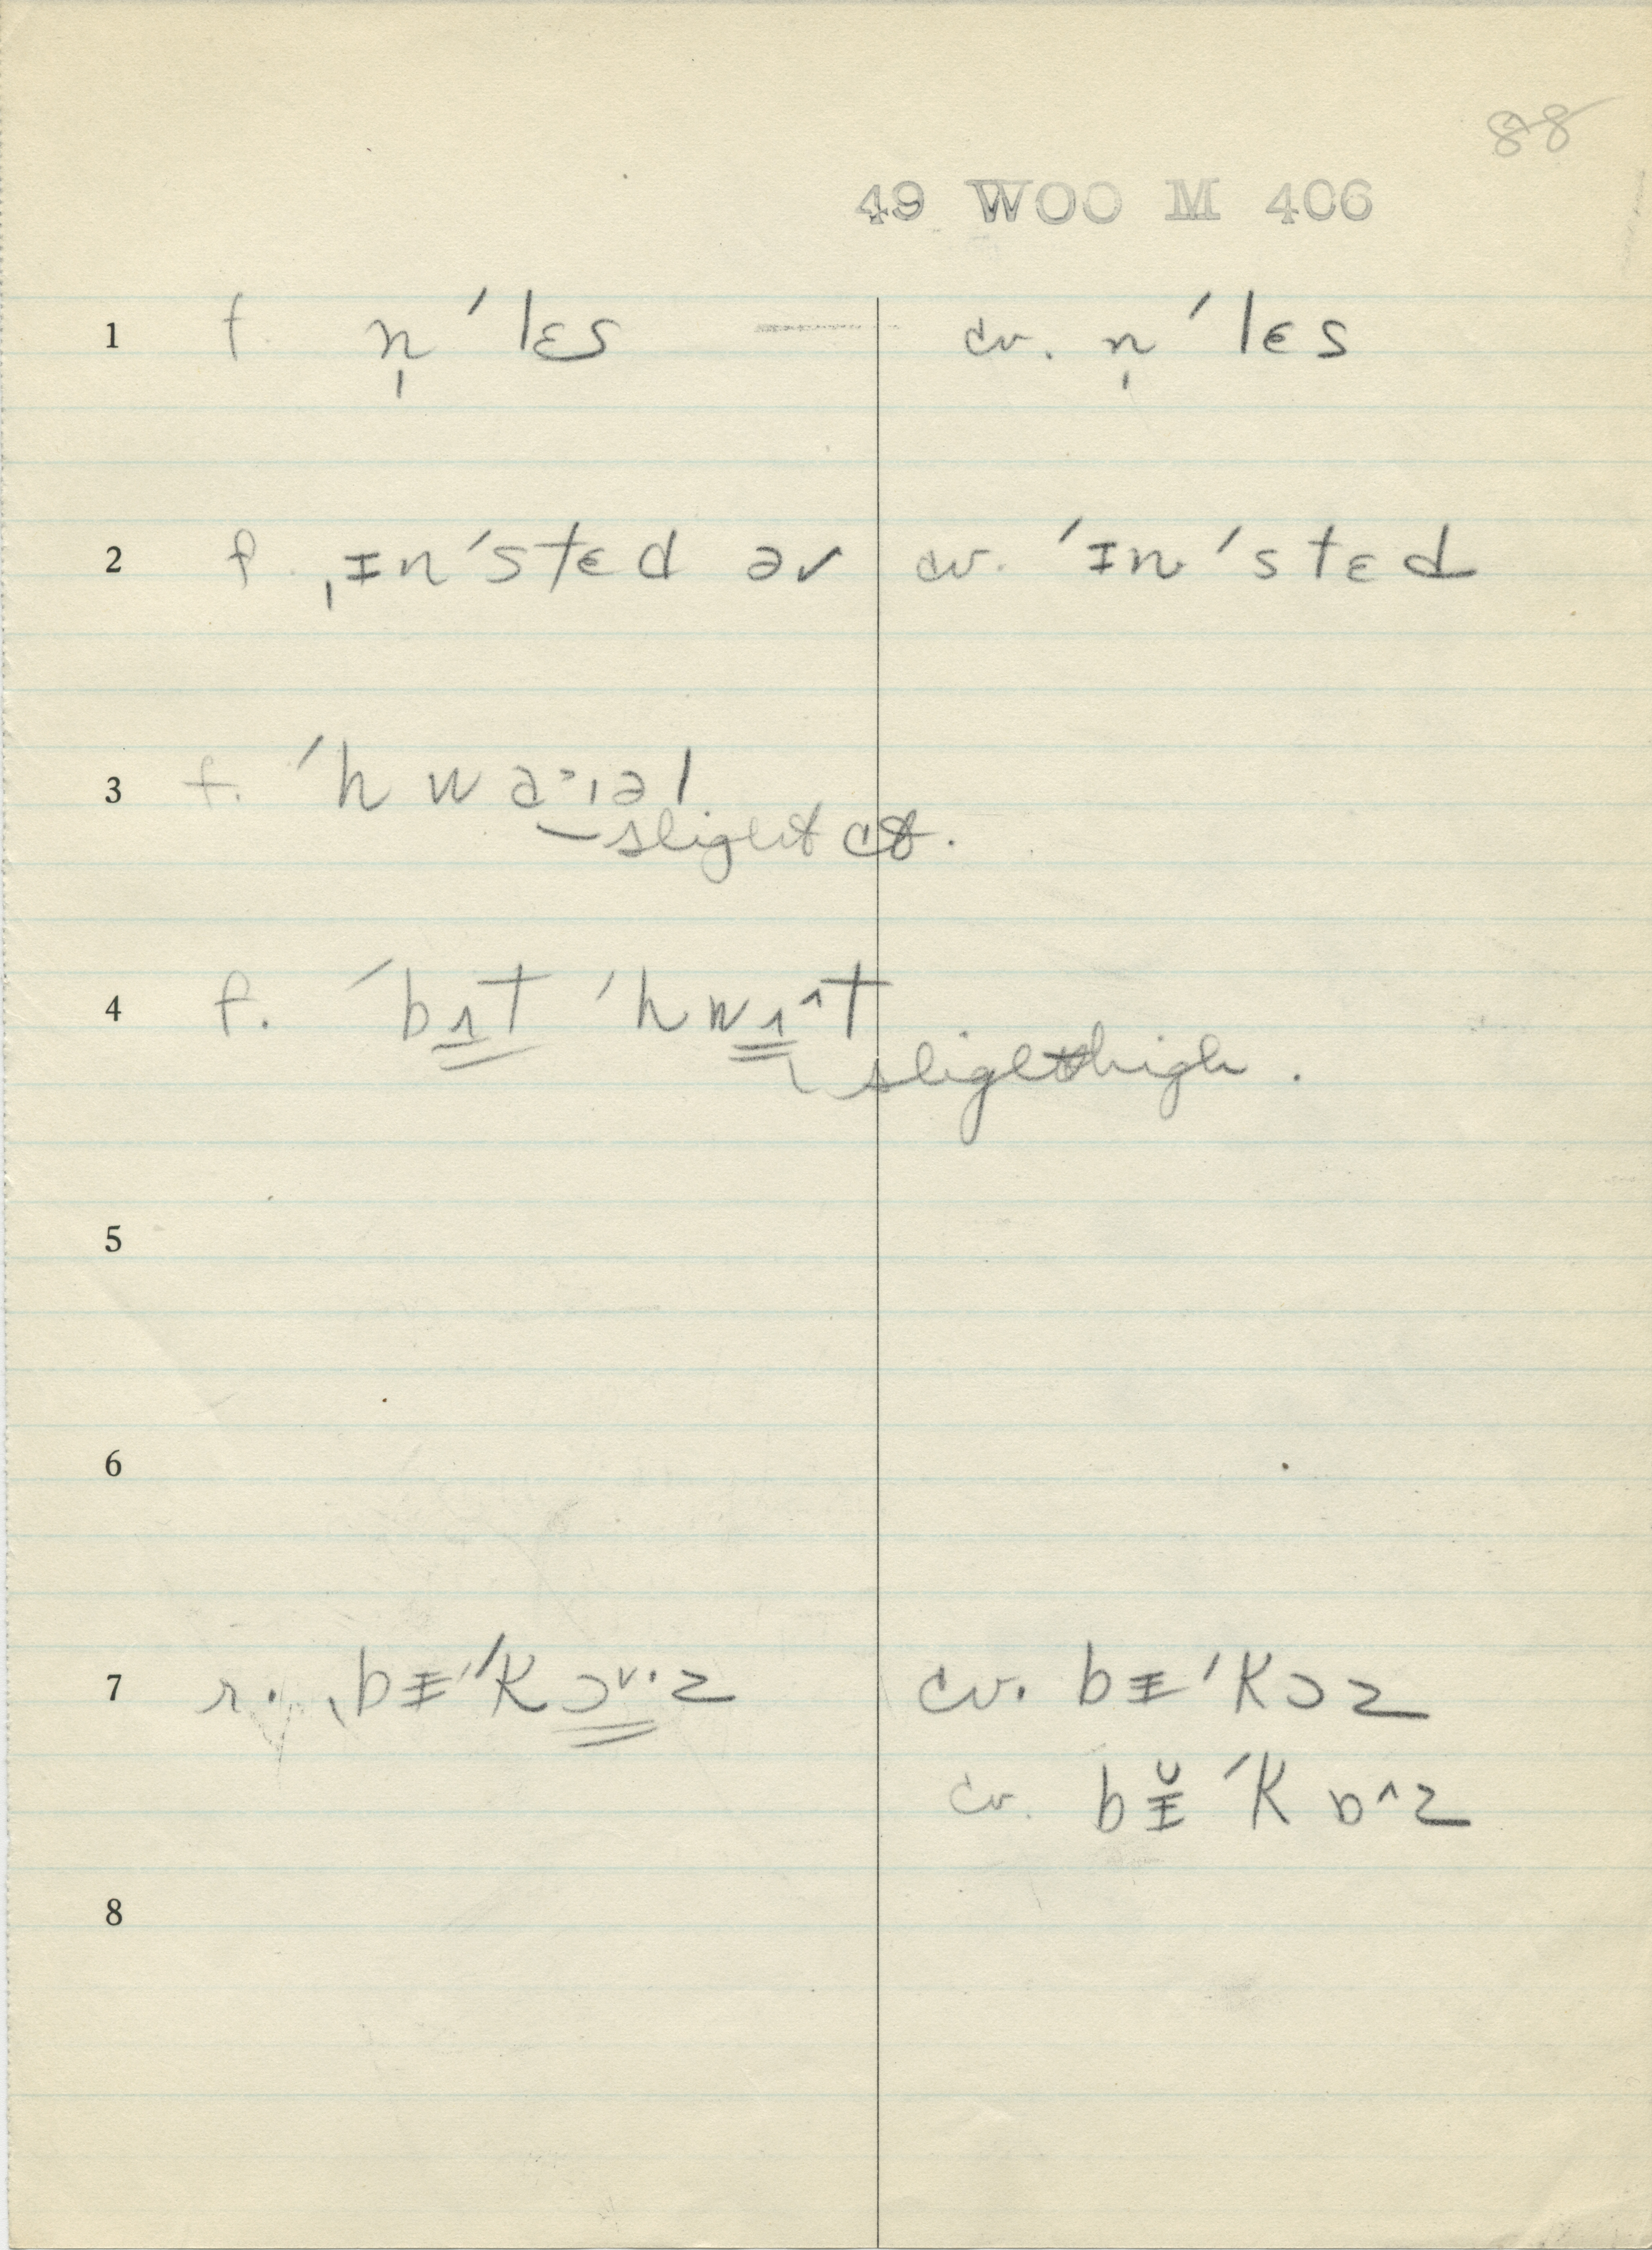 88
49 WOO M 406
1 f. n̩ ˈlɛs cv. n̩ ˈlɛs
2 f. ˌɪnˈstɛd əv cv. ˈɪnˈstɛd
3 f.
slight ct.
4 f. ˈbɨt ˈhwɨ^t
slight high.
7 r. ˌbᵻˈkɔᵛ·z cv. bᵻˈkɔz
cv. bᵻ̆ ˈkɒ^z
5
6
8